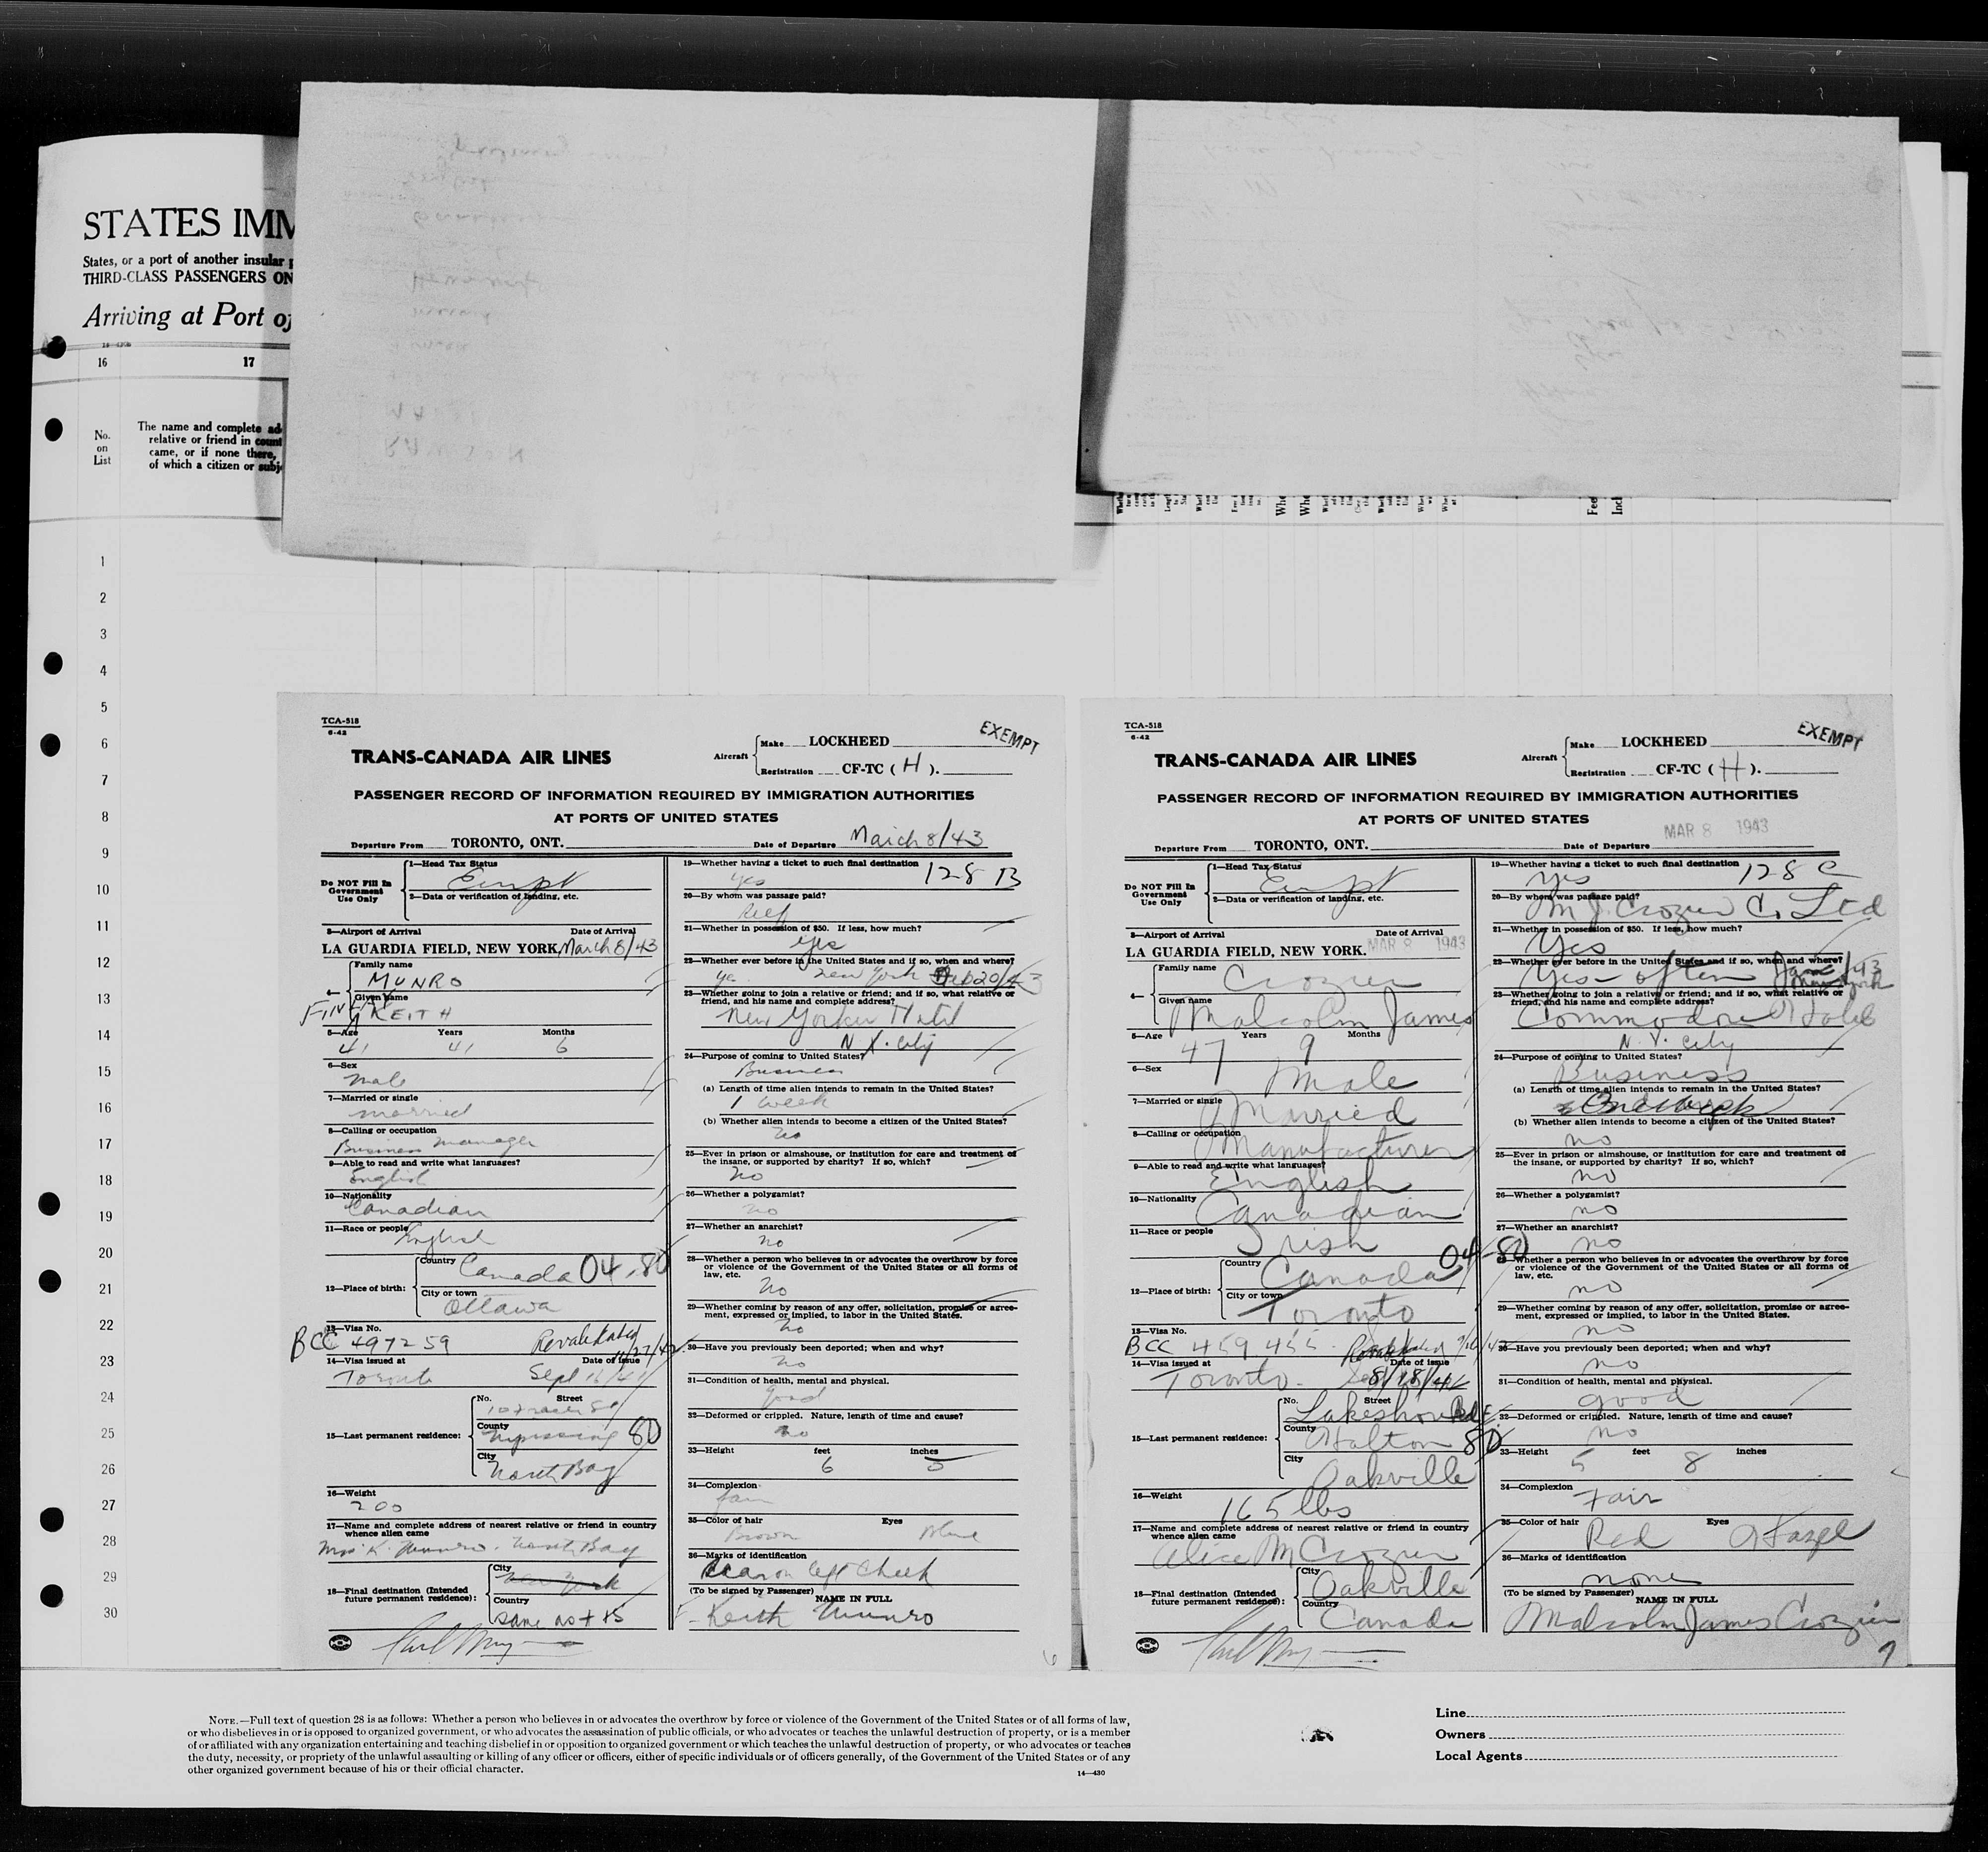 STATES IMM
States, or a port of another insular
THIRD-CLASS PASSENGERS ON
Arriving at Port of
16 17
No. on List
The name and complete ad
relative or friend in count
came, or if none there,
of which a citizen or subj
Feet
Inch
1
2
3
4
5
6
7
8
9
10
11
12
13
14
15
16
17
18
19
20
21
22
23
24
25
26
27
28
29
30
TCA-518
6-42
EXEMPT
TRANS-CANADA AIR LINES
Aircraft Make LOCKHEED
Registration CF-TC (H).
PASSENGER RECORD OF INFORMATION REQUIRED BY IMMIGRATION AUTHORITIES
AT PORTS OF UNITED STATES
Departure From TORONTO, ONT. Date of Departure March 8/43
Do NOT Fill In Government Use Only
1—Head Tax Status
Exmpt
2—Data or verification of landing, etc.
3—Airport of Arrival Date of Arrival
LA GUARDIA FIELD, NEW YORK, March 8/43
4— Family name
MUNRO
Given name
FINLAY KEITH
5—Age Years Months
41 41 6
6—Sex
male
7—Married or single
married
8—Calling or occupation
Business manager
9—Able to read and write what languages?
English
10—Nationality
Canadian
11—Race or people
English
12—Place of birth: Country
Canada 04-80
City or town
Ottawa
13—Visa No.
BCC 497259 Revalidated 11/27/42
14—Visa issued at Date of issue
Toronto Sept 16/41
15—Last permanent residence: No. Street
County
Nipissing 80
City
North Bay
16—Weight
200
17—Name and complete address of nearest relative or friend in country
whence alien came
Mrs. K. Munro. North Bay
18—Final destination (Intended future permanent residence): City
New York
Country
same as #15
19—Whether having a ticket to such final destination
yes 128 B
20—By whom was passage paid?
Self
21—Whether in possession of $50. If less, how much?
yes
22—Whether ever before in the United States and if so, when and where?
yes New York 20/43
23—Whether going to join a relative or friend; and if so, what relative or
friend, and his name and complete address?
New Yorker Hotel
N.Y. City
24—Purpose of coming to United States?
Business
(a) Length of time alien intends to remain in the United States?
1 week
(b) Whether alien intends to become a citizen of the United States?
No
25—Ever in prison or almshouse, or institution for care and treatment of
the insane, or supported by charity? If so, which?
No
26—Whether a polygamist?
no
27—Whether an anarchist?
no
28—Whether a person who believes in or advocates the overthrow by force
or violence of the Government of the United States or all forms of
law, etc.
No
29—Whether coming by reason of any offer, solicitation, promise or agree-
ment, expressed or implied, to labor in the United States.
No
30—Have you previously been deported; when and why?
No
31—Condition of health, mental and physical.
Good
32—Deformed or crippled. Nature, length of time and cause?
No
33—Height feet inches
6 5
34—Complexion
fair
35—Color of hair Eyes
Brown Blue
36—Marks of identification
Scar on left cheek
(To be signed by Passenger) NAME IN FULL
F. Keith Munro
6
TCA-518
6-42
EXEMPT
TRANS-CANADA AIR LINES
Aircraft Make LOCKHEED
Registration CF-TC (H).
PASSENGER RECORD OF INFORMATION REQUIRED BY IMMIGRATION AUTHORITIES
AT PORTS OF UNITED STATES
MAR 8 1943
Departure From TORONTO, ONT. Date of Departure
Do NOT Fill In Government Use Only
1—Head Tax Status
Exmpt
2—Data or verification of landing, etc.
3—Airport of Arrival Date of Arrival
LA GUARDIA FIELD, NEW YORK. MAR 8 1943
4— Family name
Crozier
Given name
Malcolm James
5—Age Years Months
47 9
6—Sex
Male
7—Married or single
Married
8—Calling or occupation
Manufacturer
9—Able to read and write what languages?
English
10—Nationality
Canadian
11—Race or people
Irish
12—Place of birth: Country
Canada 04-80
City or town
Toronto
13—Visa No.
BCC 459455 Revalidated
14—Visa issued at Date of issue
Toronto
15—Last permanent residence: No. Street
Lakeshore Rd E.
County
Halton 80
City
Oakville
16—Weight
165 lbs
17—Name and complete address of nearest relative or friend in country
whence alien came
Alice M Crozier
18—Final destination (Intended future permanent residence): City
Oakville
Country
Canada
19—Whether having a ticket to such final destination
yes 128 C
20—By whom was passage paid?
M J. Crozier Co. Ltd
21—Whether in possession of $50. If less, how much?
Yes
22—Whether ever before in the United States and if so, when and where?
Yes - often Jan/43 New York
23—Whether going to join a relative or friend; and if so, what relative or
friend, and his name and complete address?
Commodore Hotel
N.Y. City
24—Purpose of coming to United States?
Business
(a) Length of time alien intends to remain in the United States?
One week
(b) Whether alien intends to become a citizen of the United States?
no
25—Ever in prison or almshouse, or institution for care and treatment of
the insane, or supported by charity? If so, which?
no
26—Whether a polygamist?
no
27—Whether an anarchist?
no
28—Whether a person who believes in or advocates the overthrow by force
or violence of the Government of the United States or all forms of
law, etc.
no
29—Whether coming by reason of any offer, solicitation, promise or agree-
ment, expressed or implied, to labor in the United States.
no
30—Have you previously been deported; when and why?
no
31—Condition of health, mental and physical.
good
32—Deformed or crippled. Nature, length of time and cause?
no
33—Height feet inches
5 8
34—Complexion
Fair
35—Color of hair Eyes
Red Hazel
36—Marks of identification
none
(To be signed by Passenger) NAME IN FULL
Malcolm James Crozier
7
NOTE.—Full text of question 28 is as follows: Whether a person who believes in or advocates the overthrow by force or violence of the Government of the United States or of all forms of law,
or who disbelieves in or is opposed to organized government, or who advocates the assassination of public officials, or who advocates or teaches the unlawful destruction of property, or is a member
of or affiliated with any organization entertaining and teaching disbelief in or opposition to organized government or which teaches the unlawful destruction of property, or who advocates or teaches
the duty, necessity, or propriety of the unlawful assaulting or killing of any officer or officers, either of specific individuals or of officers generally, of the Government of the United States or of any
other organized government because of his or their official character.
14—430
Line
Owners
Local Agents